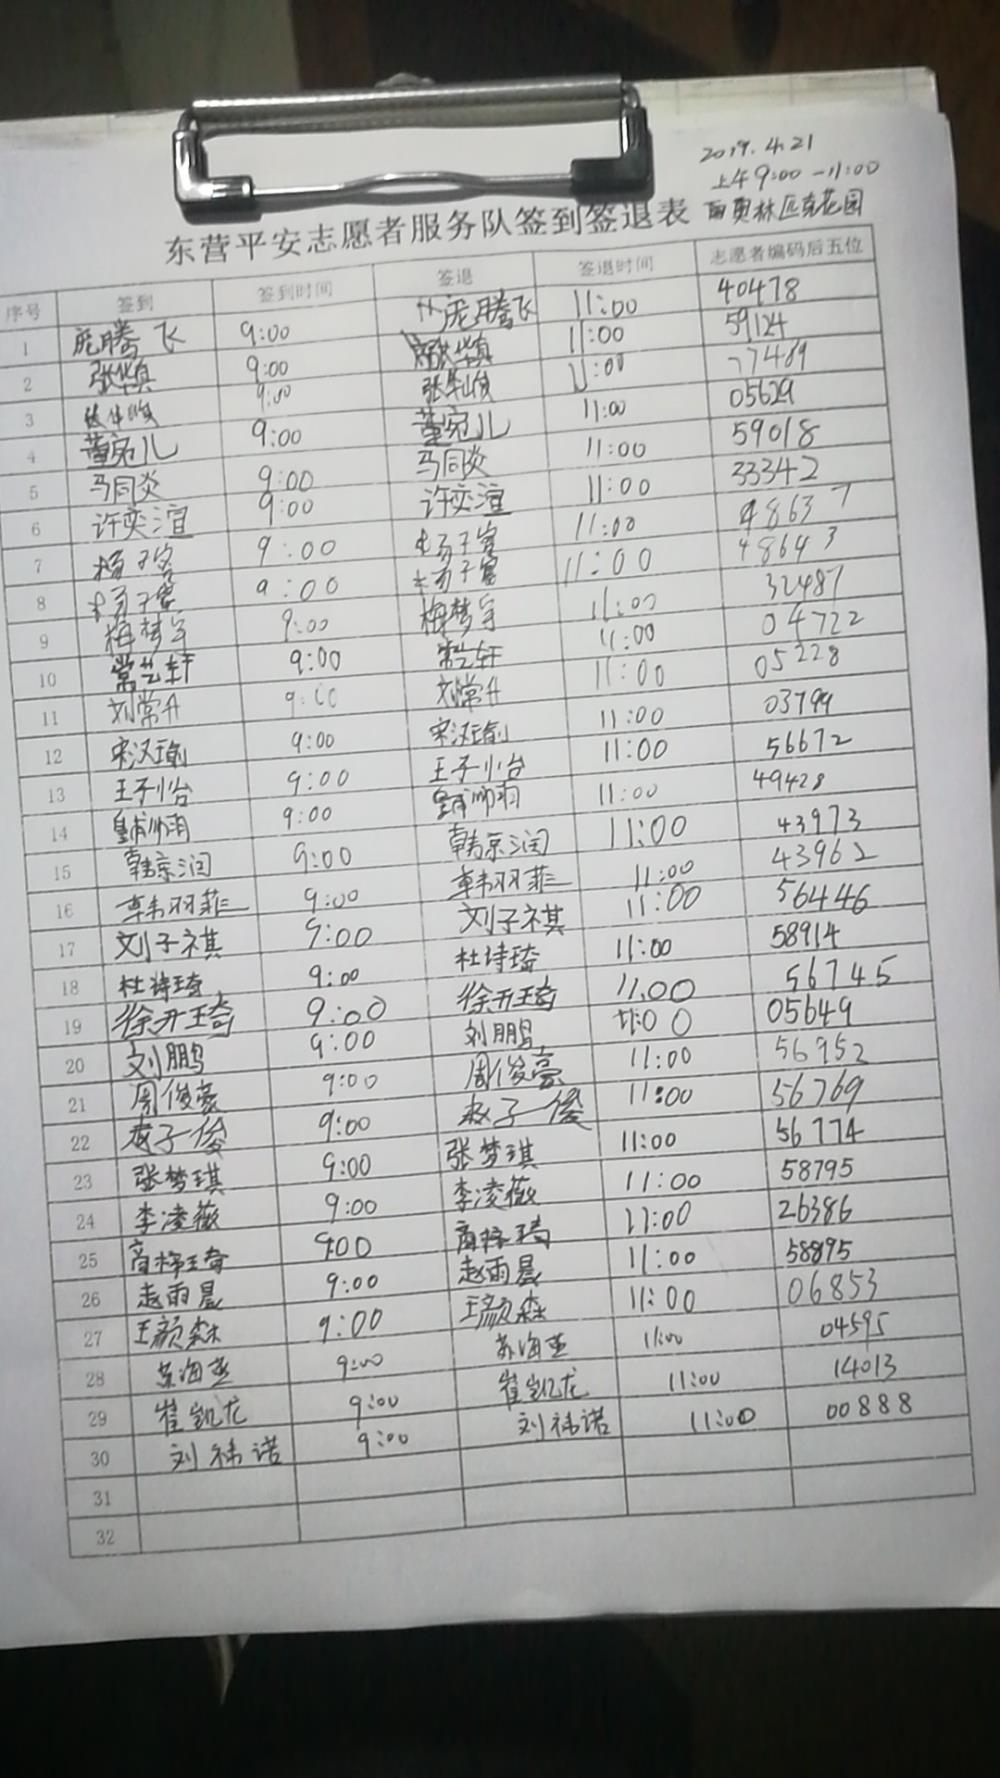 2019.4.21
上午9:00-11:00
西奥林匹克花园
东营平安志愿者服务队签到签退表
序号 签到 签到时间 签退 签退时间 志愿者编码后五位
1 庞腾飞 9:00 庞腾飞 11:00 40478
2 张华真 9:00 张华真 11:00 59124
3 9:00 11:00 77489
4 董宛儿 9:00 董宛儿 11:00 05629
5 马同炎 9:00 马同炎 11:00 59018
6 许奕渲 9:00 许奕渲 11:00 33342
7 杨子 9:00 杨子 11:00 48637
8 杨子 9:00 杨子 11:00 48643
9 梅梦宇 9:00 梅梦宇 11:00 32487
10 常艺轩 9:00 常艺轩 11:00 04722
11 刘常升 9:00 刘常升 11:00 05228
12 宋汉瑜 9:00 宋汉瑜 11:00 03799
13 王子怡 9:00 王子怡 11:00 56672
14 皇甫帅羽 9:00 皇甫帅羽 11:00 49428
15 韩京润 9:00 韩京润 11:00 43973
16 韩羽菲 9:00 韩羽菲 11:00 43962
17 刘子祺 9:00 刘子祺 11:00 56446
18 杜诗琦 9:00 杜诗琦 11:00 58914
19 徐开琦 9:00 徐开琦 11:00 56745
20 刘鹏 9:00 刘鹏 11:00 05649
21 周俊豪 9:00 周俊豪 11:00 56952
22 子俊 9:00 子俊 11:00 56769
23 张梦琪 9:00 张梦琪 11:00 56774
24 李凌薇 9:00 李凌薇 11:00 58795
25 商梓琦 9:00 商梓琦 11:00 26386
26 赵雨晨 9:00 赵雨晨 11:00 58895
27 王颜森 9:00 王颜森 11:00 06853
28 苏海燕 9:00 苏海燕 11:00 04595
29 崔凯龙 9:00 崔凯龙 11:00 14013
30 刘祎诺 9:00 刘祎诺 11:00 00888
31
32